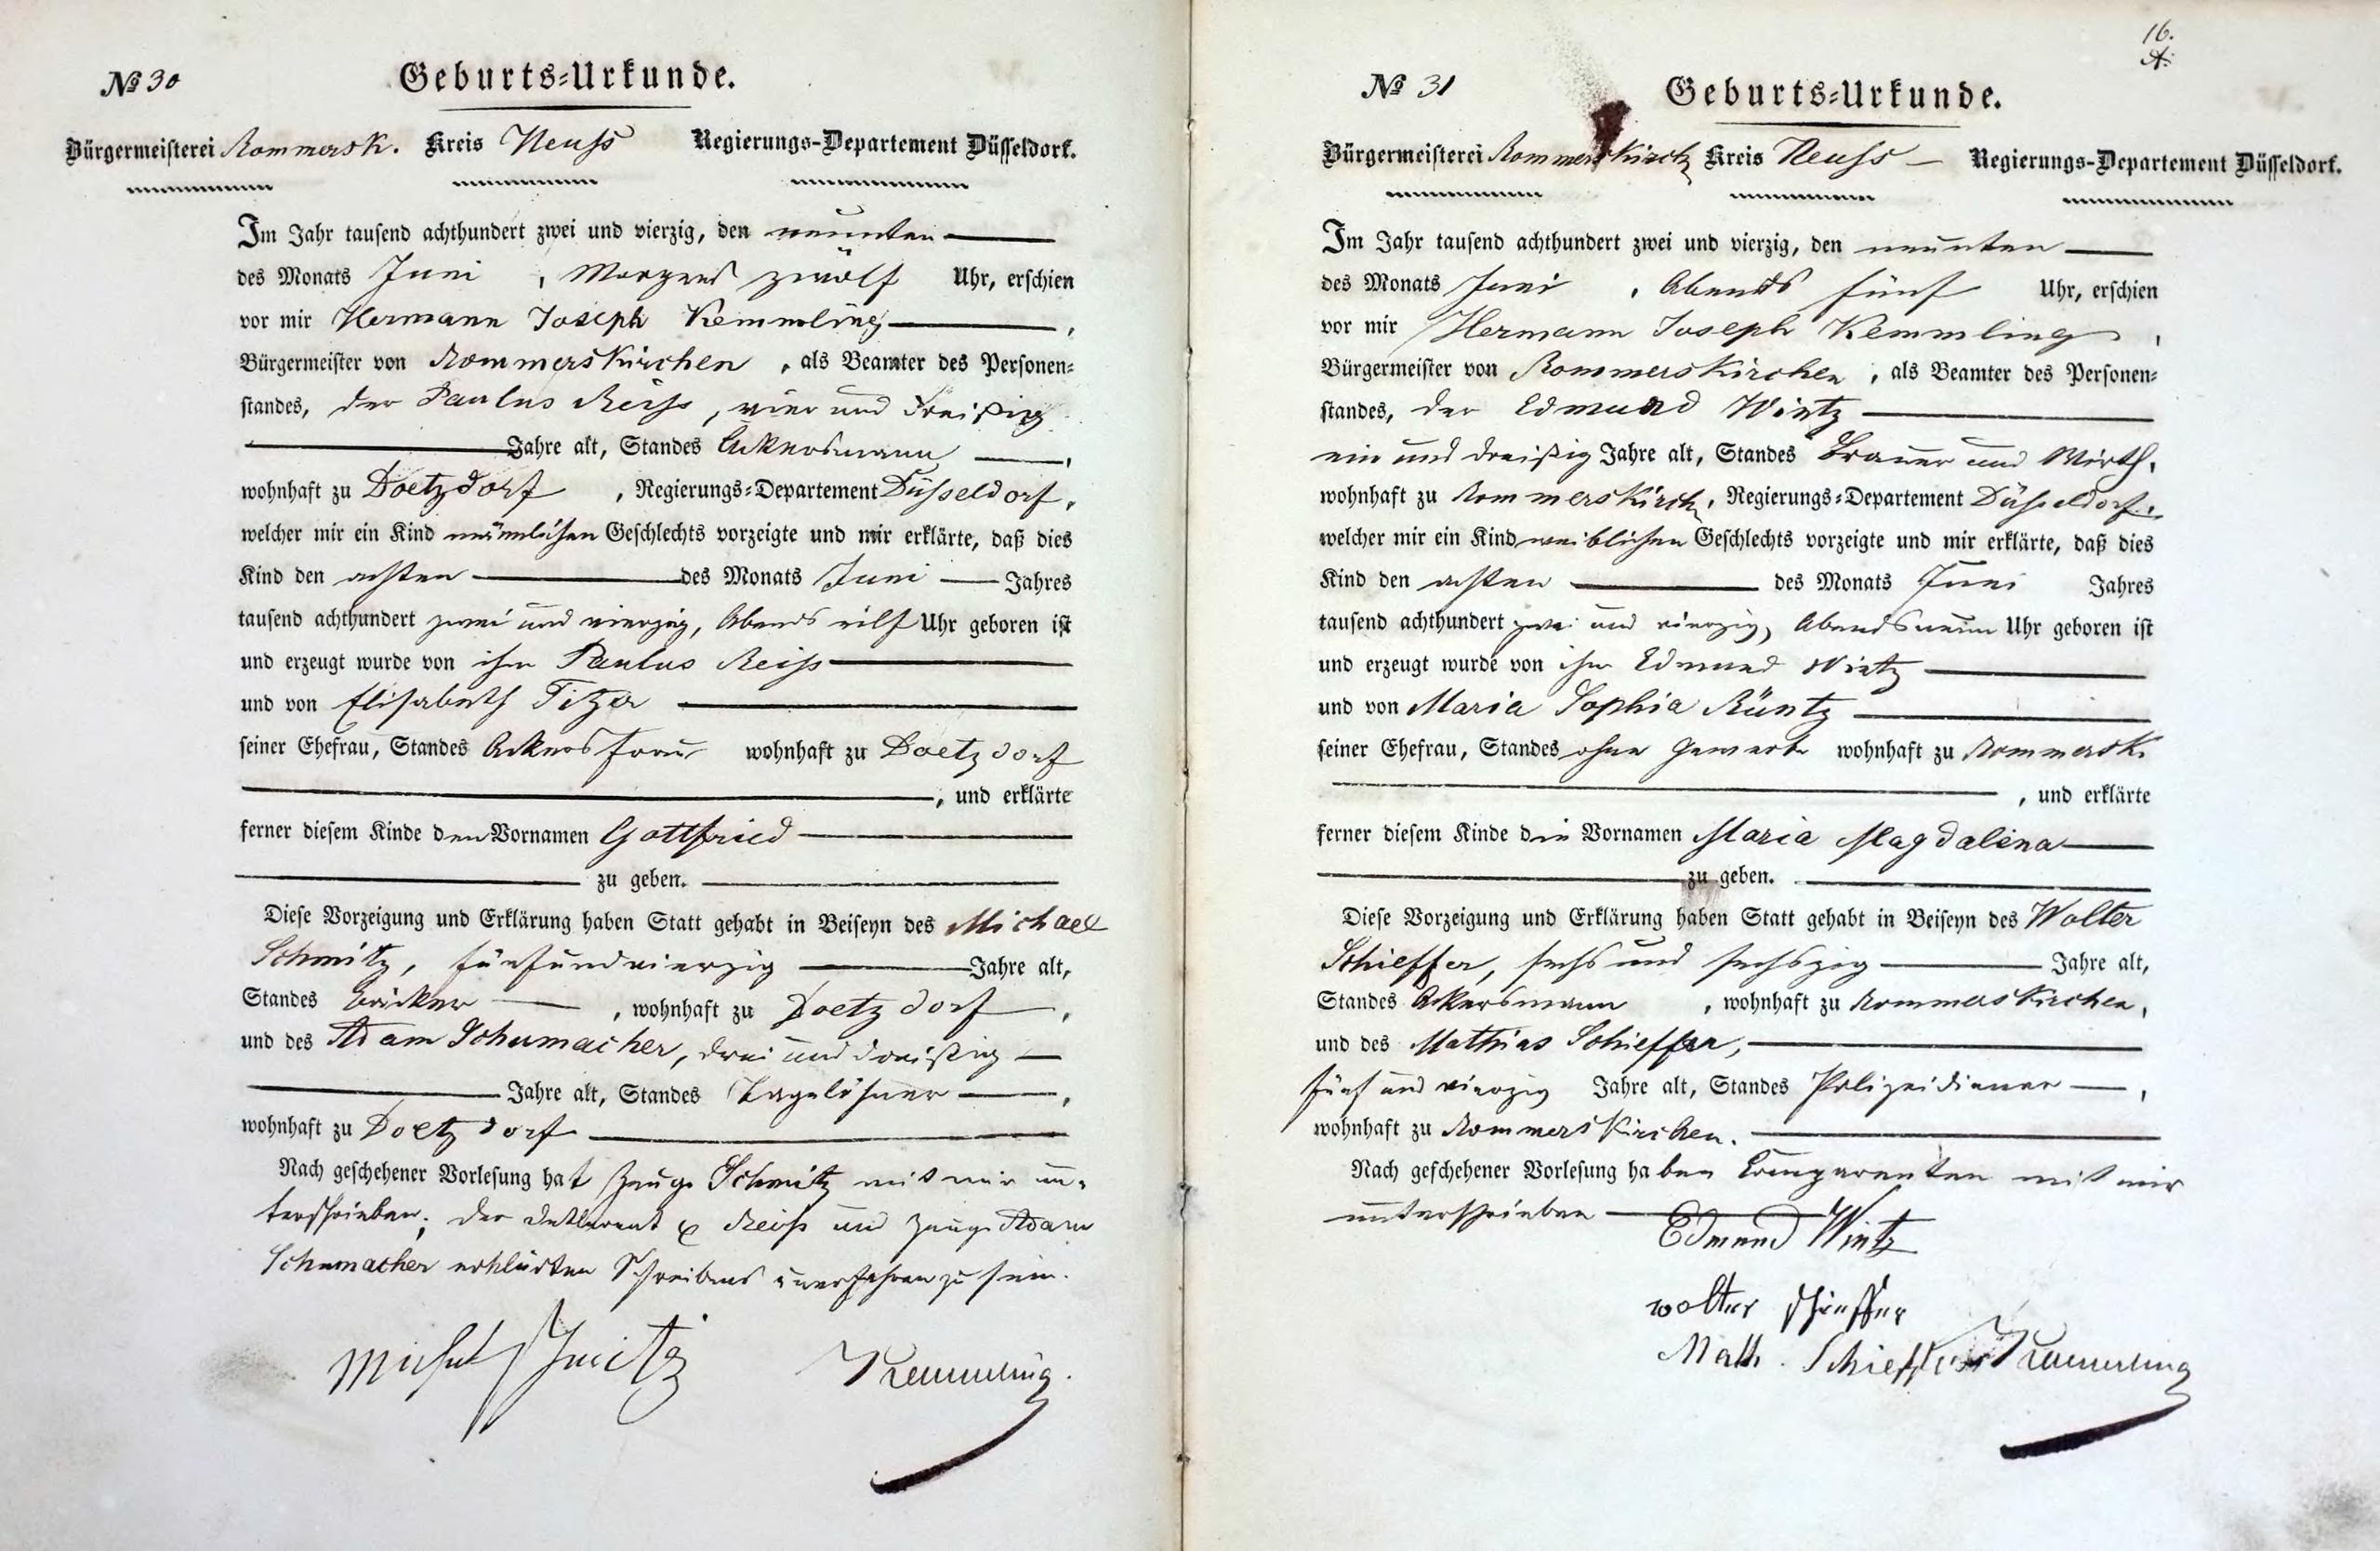 № 30
Geburts-Urkunde.
Bürgermeisterei Rommersk. Kreis Neuss Regierungs-Departement Düsseldorf.
Im Jahr tausend achthundert zwei und vierzig, den neunten
des Monats Juni, Morgens zwölf Uhr, erschien
vor mir Hermann Joseph Kemmling,
Bürgermeister von Rommerskirchen, als Beamter des Personen-
standes, der Paulus Reiss, vier und dreißig
Jahre alt, Standes Ackersmann,
wohnhaft zu Doetzdorf, Regierungs-Departement Düsseldorf,
welcher mir ein Kind männlichen Geschlechts vorzeigte und mir erklärte, daß dies
Kind den achten des Monats Juni Jahres
tausend achthundert zwei und vierzig, Abends eilf Uhr geboren ist
und erzeugt wurde von ihm Paulus Reiss
und von Elisabeth Titzer
seiner Ehefrau, Standes Ackersfrau wohnhaft zu Doetzdorf
, und erklärte
ferner diesem Kinde den Vornamen Gottfried
zu geben.
Diese Vorzeigung und Erklärung haben Statt gehabt in Beiseyn des Michael
Schmitz, fünfundvierzig Jahre alt,
Standes , wohnhaft zu Doetzdorf,
und des Adam Schumacher, drei und dreißig
Jahre alt, Standes Tagelöhner,
wohnhaft zu Doetzdorf
Nach geschehener Vorlesung hat Zeuge Schmitz mit mir un-
terschrieben; der Deklarant Reiss und Zeuge Adam
Schumacher erklärten Schreibens unerfahren zu sein.
Michel Schmitz Kemmling.
16.
A.
№ 31
Geburts-Urkunde.
Bürgermeisterei Rommerskirch Kreis Neuss Regierungs-Departement Düsseldorf.
Im Jahr tausend achthundert zwei und vierzig, den neunten
des Monats Juni, Abends fünf Uhr, erschien
vor mir Hermann Joseph Kemmling,
Bürgermeister von Rommerskirchen, als Beamter des Personen-
standes, der Edmund Wintz
ein und dreißig Jahre alt, Standes Brauer und Wirth,
wohnhaft zu Rommerskirch, Regierungs-Departement Düsseldorf,
welcher mir ein Kind weiblichen Geschlechts vorzeigte und mir erklärte, daß dies
Kind den achten des Monats Juni Jahres
tausend achthundert zwei und vierzig, Abends neun Uhr geboren ist
und erzeugt wurde von ihm Edmund Wintz
und von Maria Sophia Rüntz
seiner Ehefrau, Standes ohne Gewerbe wohnhaft zu Rommersk.
, und erklärte
ferner diesem Kinde die Vornamen Maria Magdalena
zu geben.
Diese Vorzeigung und Erklärung haben Statt gehabt in Beiseyn des Wolter
Schieffer, sechs und sechszig Jahre alt,
Standes Ackersmann, wohnhaft zu Rommerskirchen,
und des Mathias Schieffer,
fünf und vierzig Jahre alt, Standes Polizeidiener,
wohnhaft zu Rommerskirchen.
Nach geschehener Vorlesung haben Comparenten mit mir
unterschrieben
Edmund Wintz
Wolter Schieffer
Math. Schieffer Kemmling